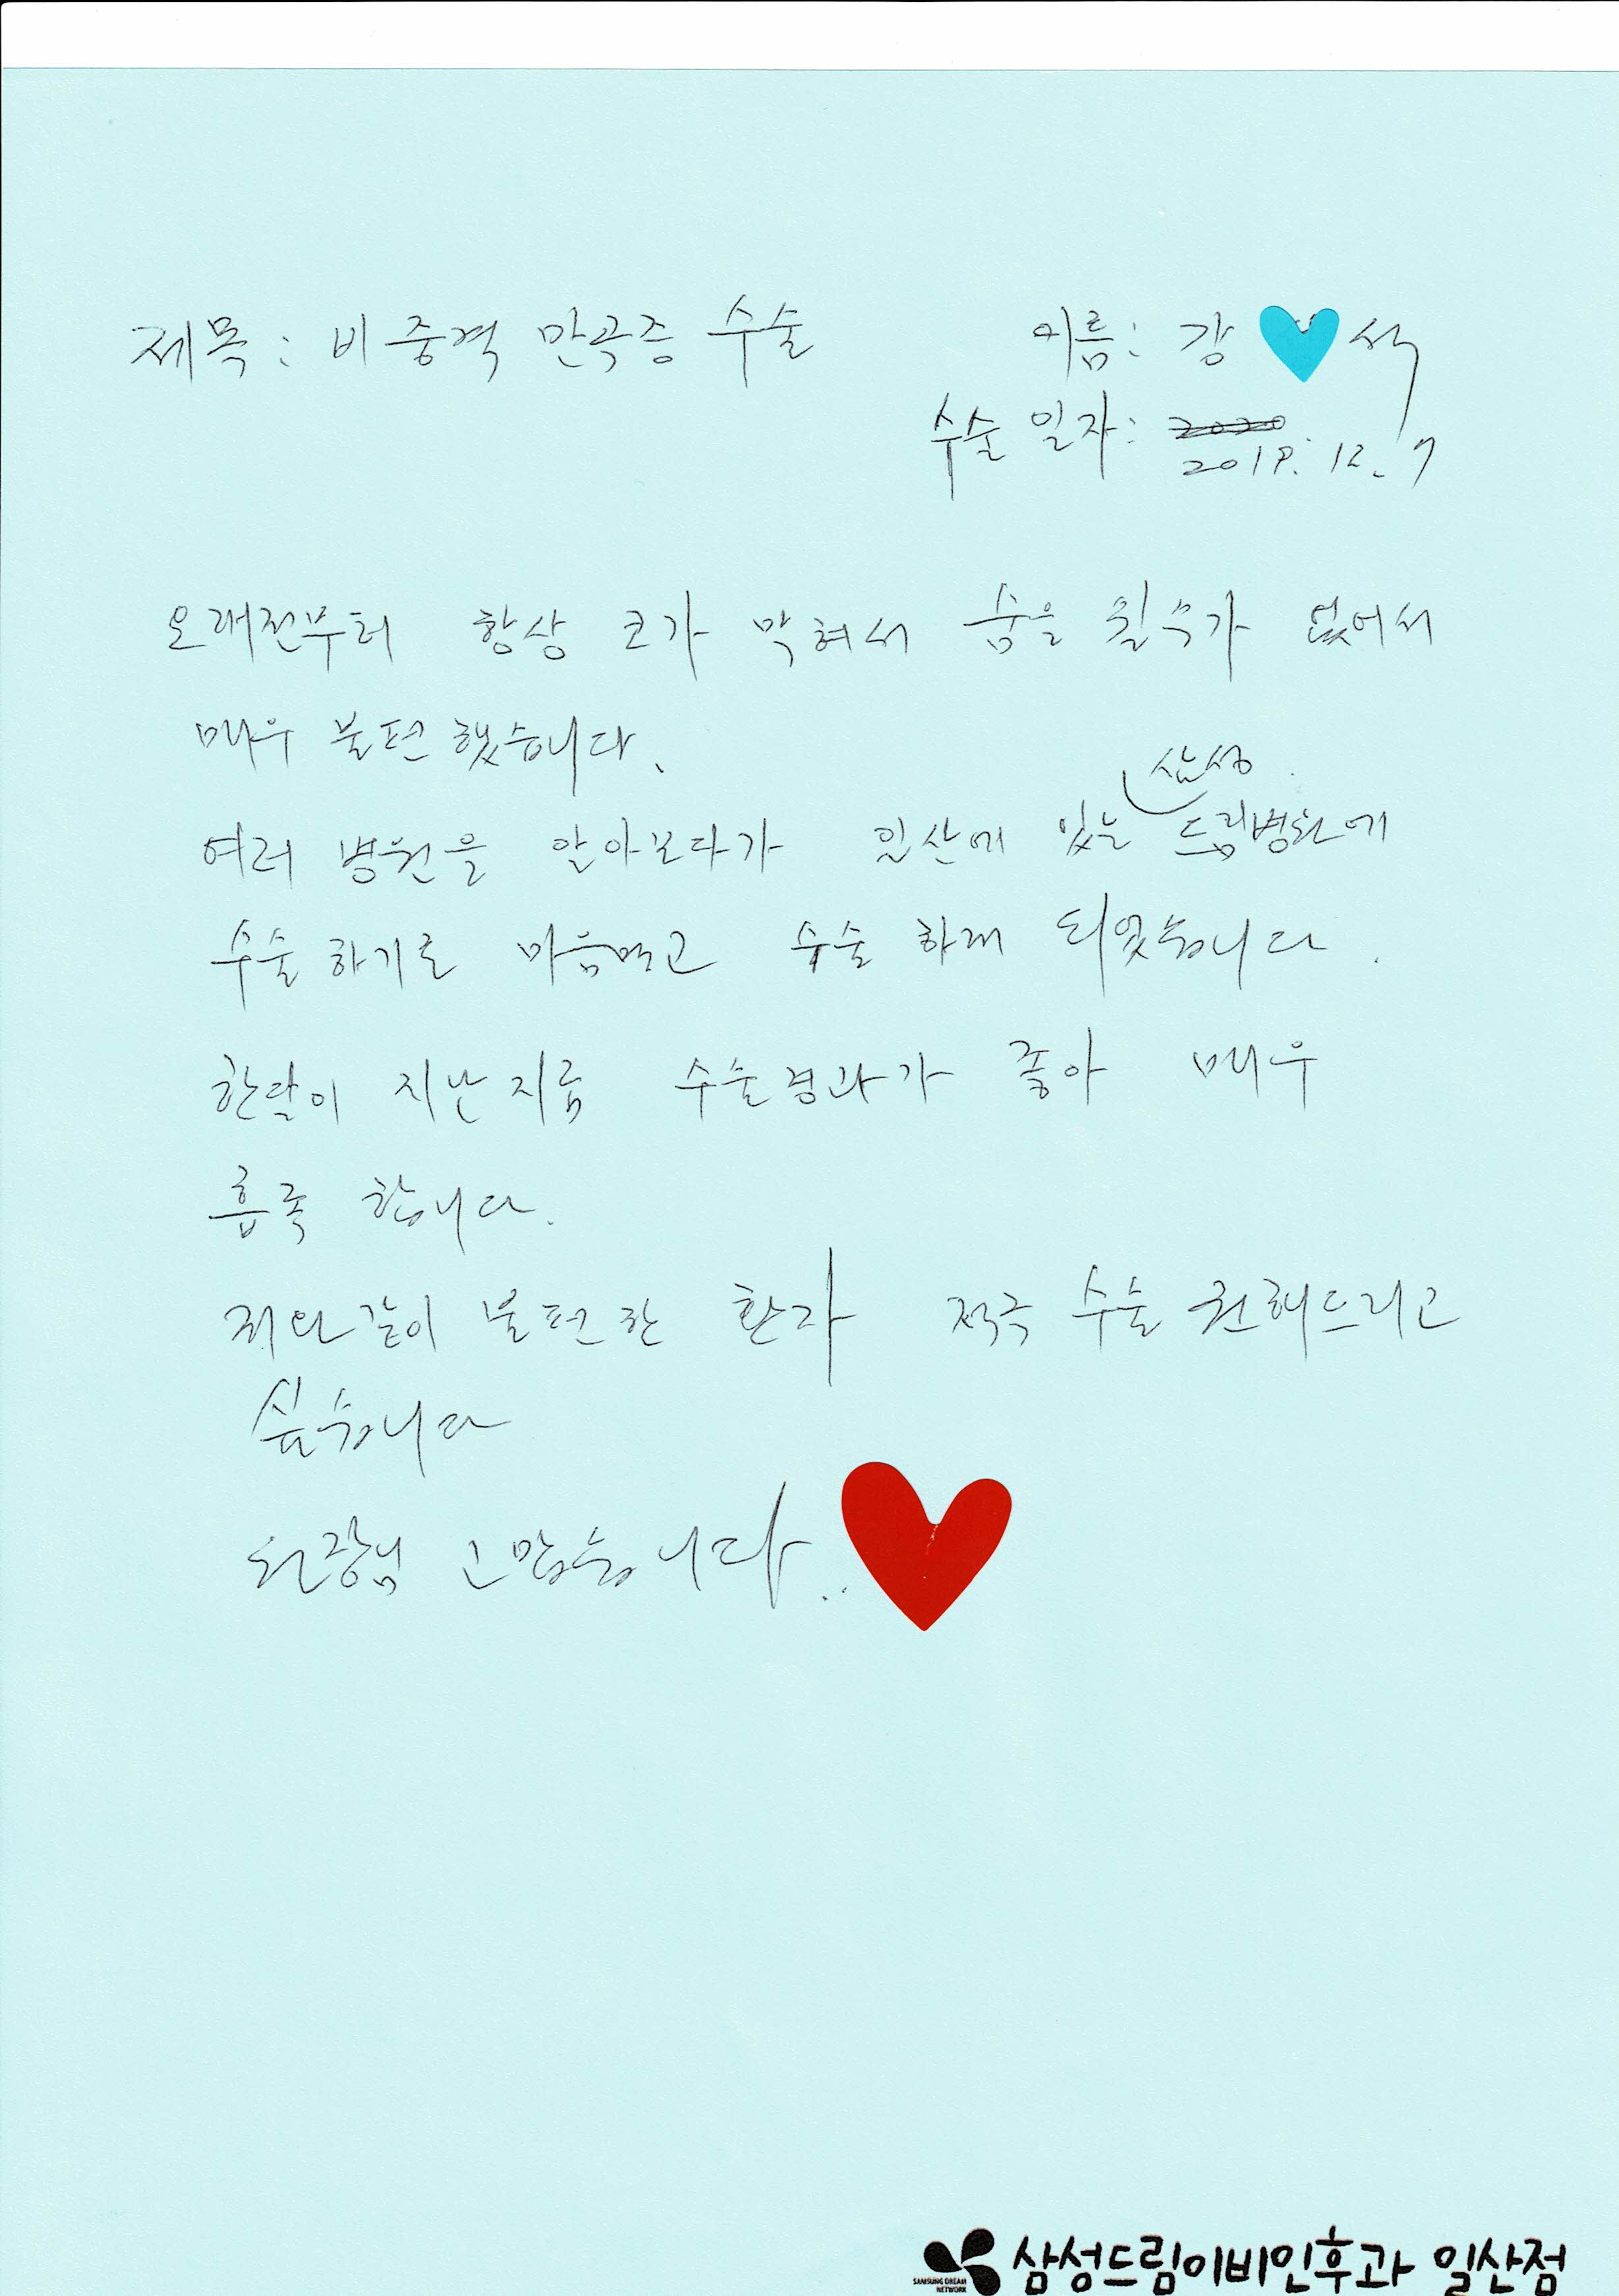 제목: 비중격 만곡증 수술 이름: 강 석
수술 일자: 2019. 12. 7
오래전부터 항상 코가 막혀서 숨을 쉴수가 없어서
매우 불편했습니다.
여러 병원을 알아보다가 일산에 있는 삼성드림병원에
수술하기로 마음먹고 수술 하게 되었습니다.
한달이 지난 지금 수술경과가 좋아 매우
흡족 합니다.
저와 같이 불편한 환자 적극 수술 권해드리고
싶습니다
원장님 고맙습니다..
SAMSUNG DREAM NETWORK 삼성드림이비인후과 일산점